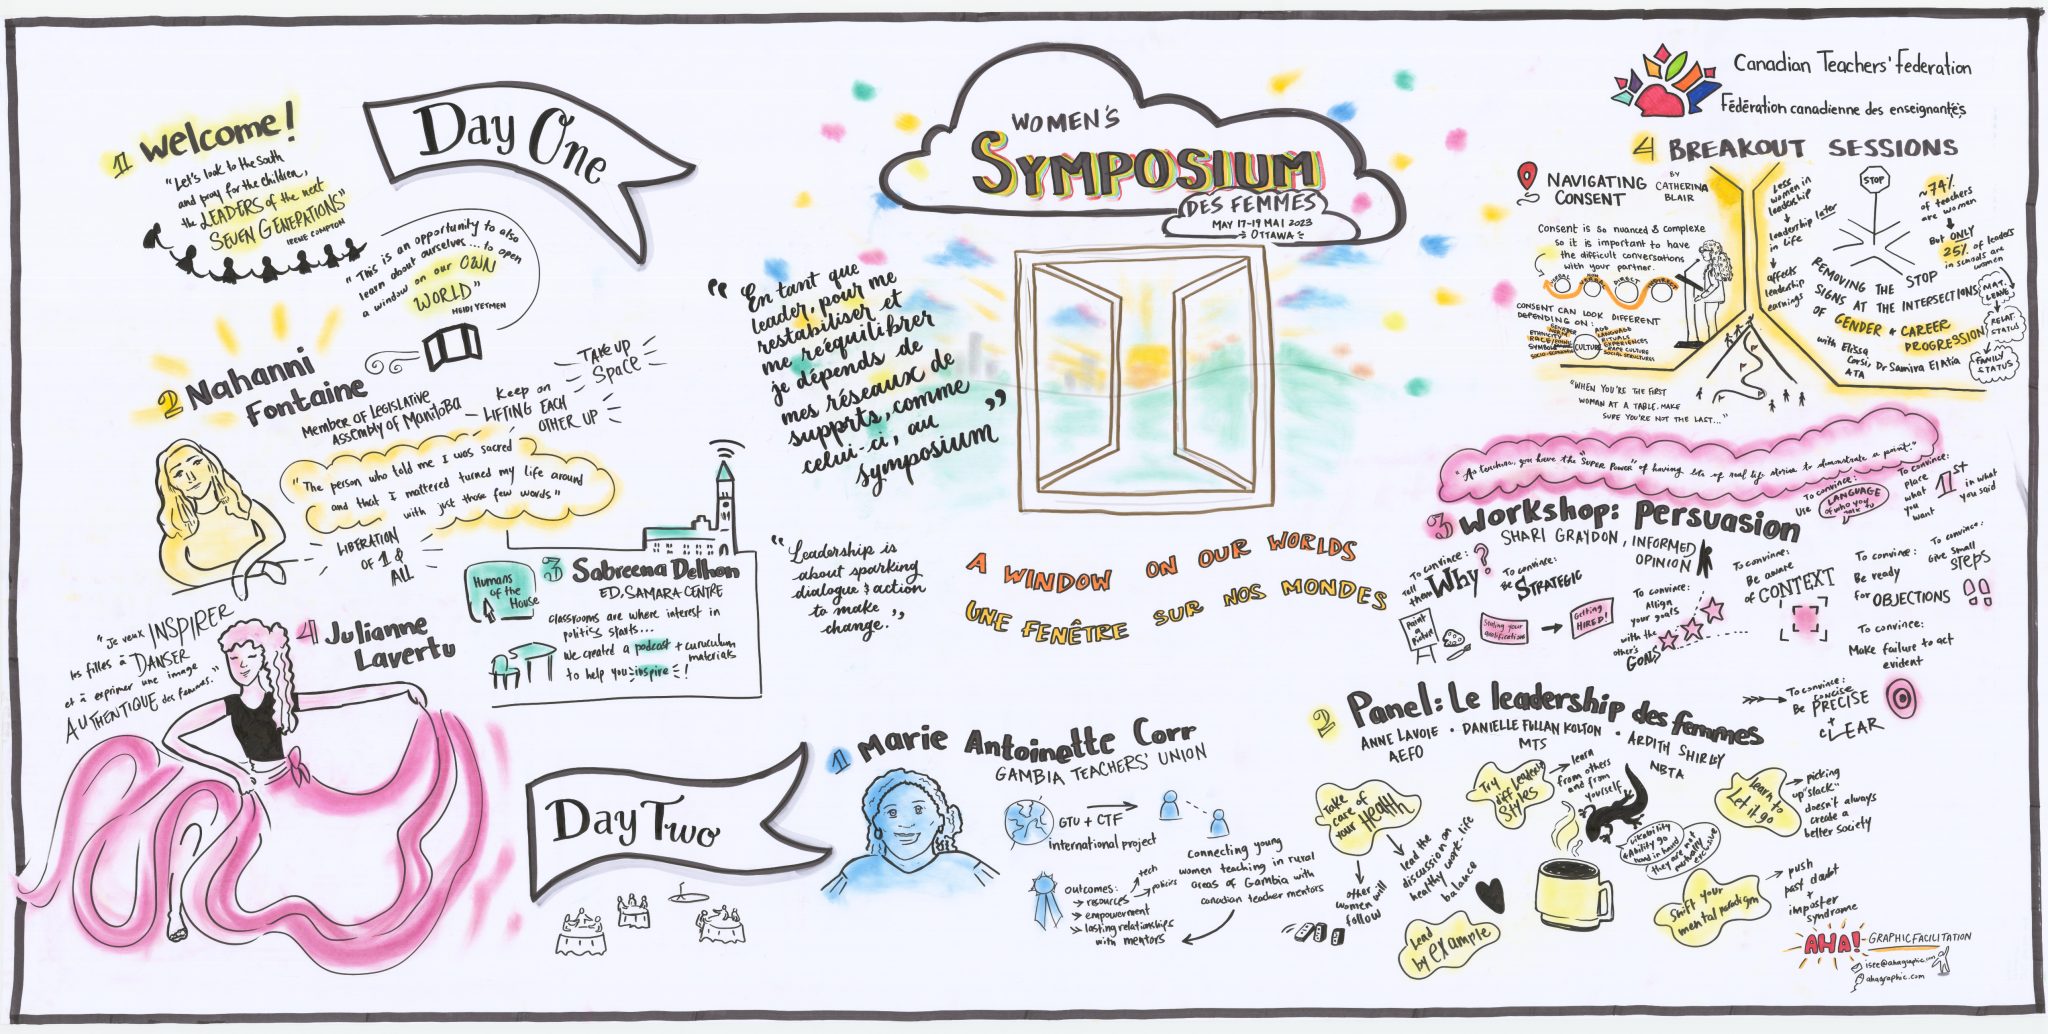 Day One
1 Welcome!
"Let's look to the South
and pray for the children,
the LEADERS of the next
SEVEN GENERATIONS"
IRENE COMPTON
"This is an opportunity to also
learn about ourselves... to open
a window on our OWN
WORLD"
HEIDI YETMEN
2 Nahanni
Fontaine
MEMBER OF LEGISLATIVE
ASSEMBLY OF MANITOBA
Keep on
LIFTING EACH
OTHER UP
TAKE UP
SPACE
"The person who told me I was sacred
and that I mattered turned my life around
with just those few words"
LIBERATION
OF 1 &
ALL
3 Sabreena Delhon
ED, SAMARA CENTRE
Humans
of the
House
Classrooms are where interest in
politics starts...
We created a podcast + curuculum
materials
to help you inspire!
4 Julianne
Lavertu
"Je veux INSPIRER
les filles à DANSER
et à exprimer une image
AUTHENTIQUE des femmes."
WOMEN'S
SYMPOSIUM
DES FEMMES
MAY 17-19 MAI 2023
OTTAWA
"En tant que
leader, pour me
restabiliser et
me rééquilibrer
je dépends de
mes réseaux de
supprts, comme
celui-ci, au
symposium"
"Leadership is
about sparking
dialogue & action
to make
change."
A WINDOW ON OUR WORLDS
UNE FENÊTRE SUR NOS MONDES
Day Two
1 Marie Antoinette Corr
GAMBIA TEACHERS' UNION
GTU + CTF
International project
Connecting young
women teaching in rural
areas of Gambia with
canadian teacher mentors
outcomes:
resources
tech
policies
empowerment
lasting relationships
with mentors
2 Panel: Le leadership des femmes
ANNE LAVOIE · DANIELLE FULLAN KOLTON · ARDITH SHIRLEY
AEFO
MTS
NBTA
Take
care of
your HEALTH
other
women will
follow
lead the
discussion on
healthy work-life
balance
Try
diff leadership
styles
learn
from others
and from
yourself
Likability
+ Ability go
hand in hand
they are not
mutually
exclusive
learn to
Let it go
picking
up "slack"
doesn't always
create a
better society
Lead
by example
Shift your
mental paradigm
push
past doubt
+
imposter
syndrome
3 Workshop: Persuasion
SHARI GRAYDON, INFORMED
OPINION
"As teachers, you have the "SUPER POWER" of having lots of real life stories to demonstrate a point."
To convince:
Use LANGUAGE
of who you
talk to
To convince:
place
what
you
want
1st
in what
you said
To convince:
Tell
them Why?
Paint
a
Picture
To convince:
Be STRATEGIC
Stating your
qualifications
Getting
HIRED!
To convince:
Allign
your goals
with the
other's
GOALS
To convince:
Be aware
of CONTEXT
To convince:
Be ready
for OBJECTIONS
To convince:
Give small
STEPS
To convince:
Make failure to act
evident
To convince:
Be concise
PRECISE
+
CLEAR
Canadian Teachers' Federation
Fédération canadienne des enseignant.e.s
4 BREAKOUT SESSIONS
NAVIGATING
CONSENT
BY
CATHERINA
BLAIR
Consent is so nuanced & complexe
so it is important to have
the difficult conversations
with your partner.
VERBAL
DIRECT
INDIRECT
CONSENT CAN LOOK DIFFERENT
DEPENDING ON:
CULTURE
ETHNICITY
SYMBOLS
SOCIO-ECONOMIC
AGE
LANGUAGE
RITUALS
EXPERIENCES
RAPE CULTURE
SOCIAL STRUCTURES
Less
women in
leadership
leadership later
in life
affects
leadership
earnings
STOP
~74%
of teachers
are women
But ONLY
25% of leaders
in schools are
women
REMOVING THE STOP
SIGNS AT THE INTERSECTIONS
OF GENDER & CAREER
PROGRESSION
with Elissa
Corsi, Dr Samira ElAtia
ATA
MAT.
LEAVE
RELAT.
STATUS
FAMILY
STATUS
"WHEN YOU'RE THE FIRST
WOMAN AT A TABLE, MAKE
SURE YOU'RE NOT THE LAST..."
AHA! GRAPHIC FACILITATION
isee@ahagraphic.com
ahagraphic.com